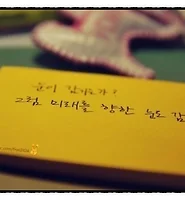 눈이 감기는가?
그럼 미래를 향한 눈도 감